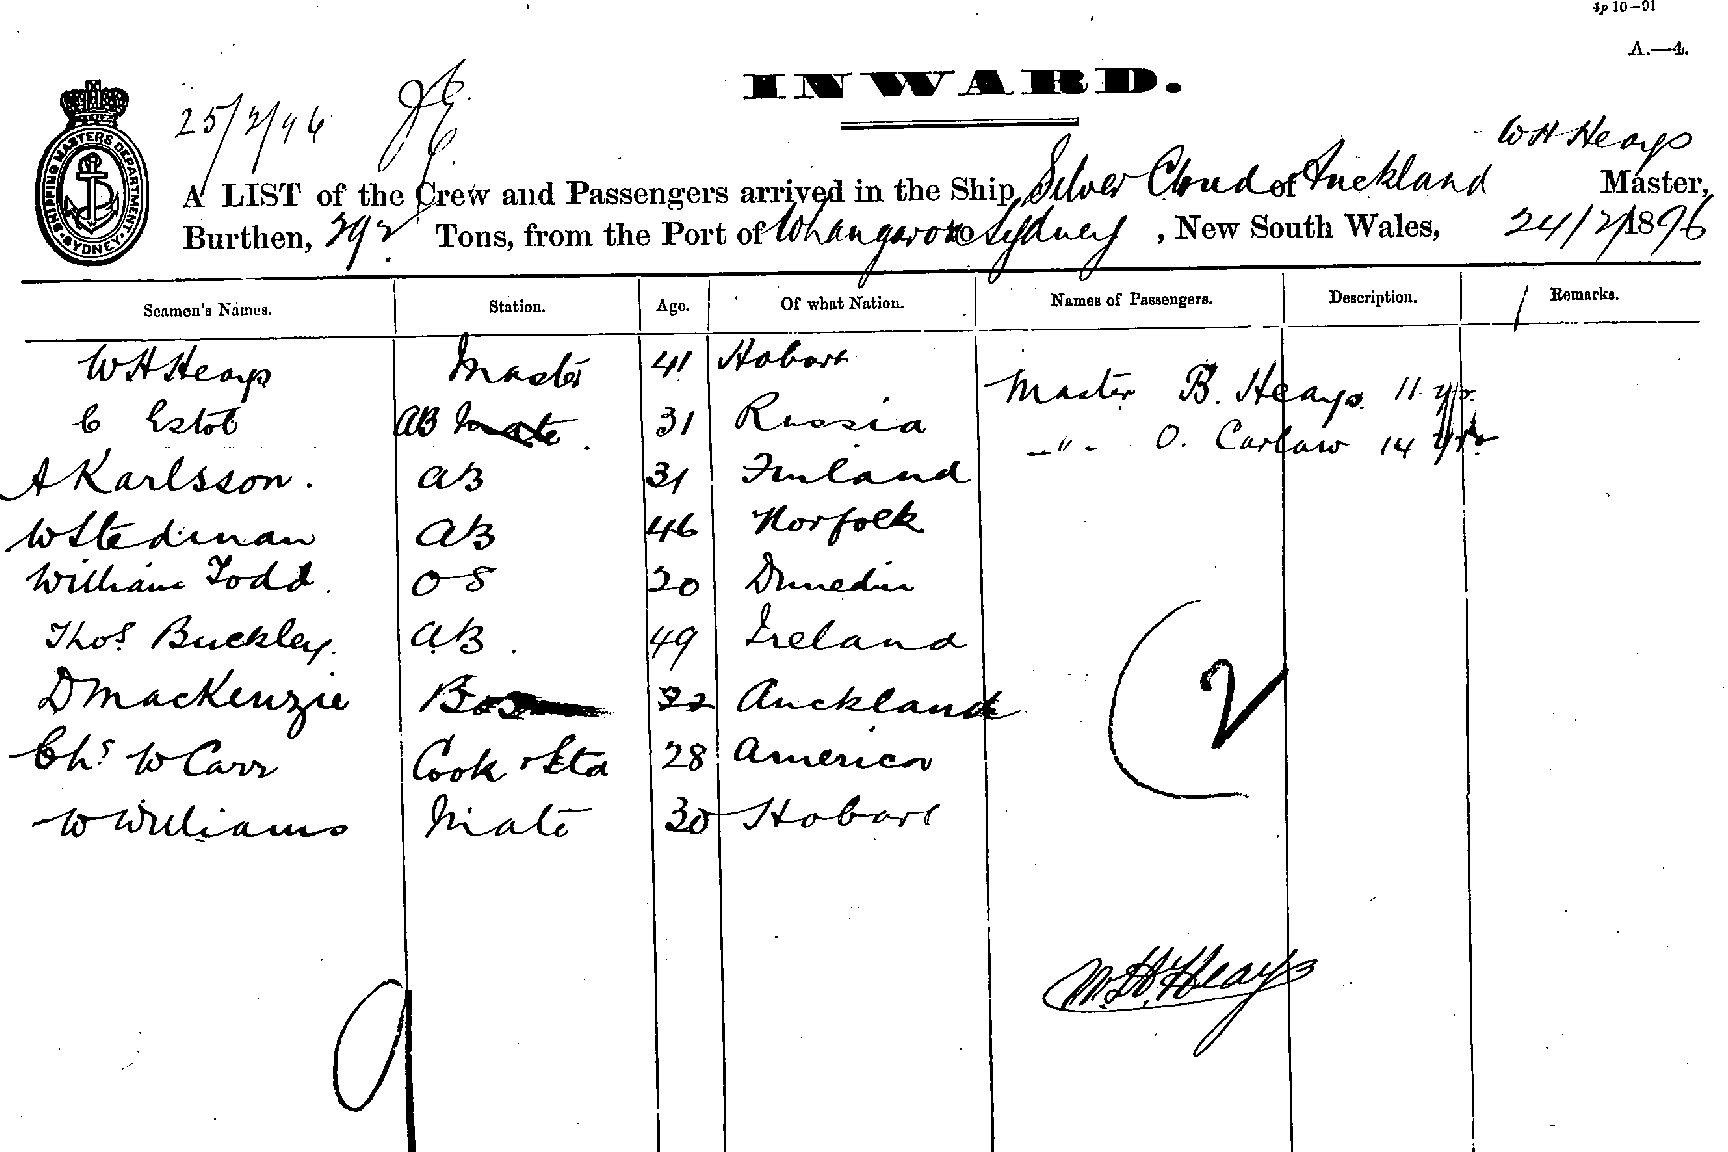 4p 10-91
A.—4.
INWARD.
25/2/96
W H Heays
A LIST of the Crew and Passengers arrived in the Ship Silver Cloud of Auckland Master,
Burthen, 292 Tons, from the Port of Whangaroa to Sydney, New South Wales, 24/2/1896
SHIPPING MASTERS DEPARTMENT SYDNEY
Seamen's Names. Station. Age. Of what Nation. Names of Passengers. Description. Remarks.
W H Heays Master 41 Hobart
Master B. Heays 11 yrs
C Estob AB Mate 31 Russia
-"- O. Carlaw 14 yrs
A Karlsson. AB 31 Finland
W Stedman AB 46 Norfolk
William Todd. OS 20 Dunedin
Thos Buckley. AB. 49 Ireland
D MacKenzie 22 Auckland
Chs W Carr Cook & Std 28 America
W Williams Mate 30 Hobart
2
W.H. Heays
9